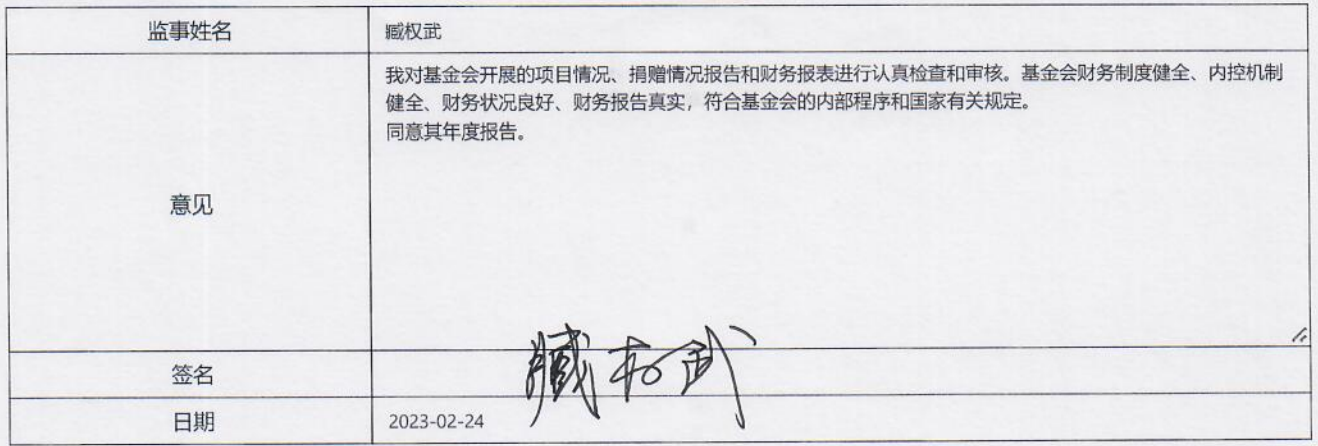 监事姓名 臧权武
我对基金会开展的项目情况、捐赠情况报告和财务报表进行认真检查和审核。基金会财务制度健全、内控机制
健全、财务状况良好、财务报告真实，符合基金会的内部程序和国家有关规定。
同意其年度报告。
意见
签名 臧权武
日期 2023-02-24